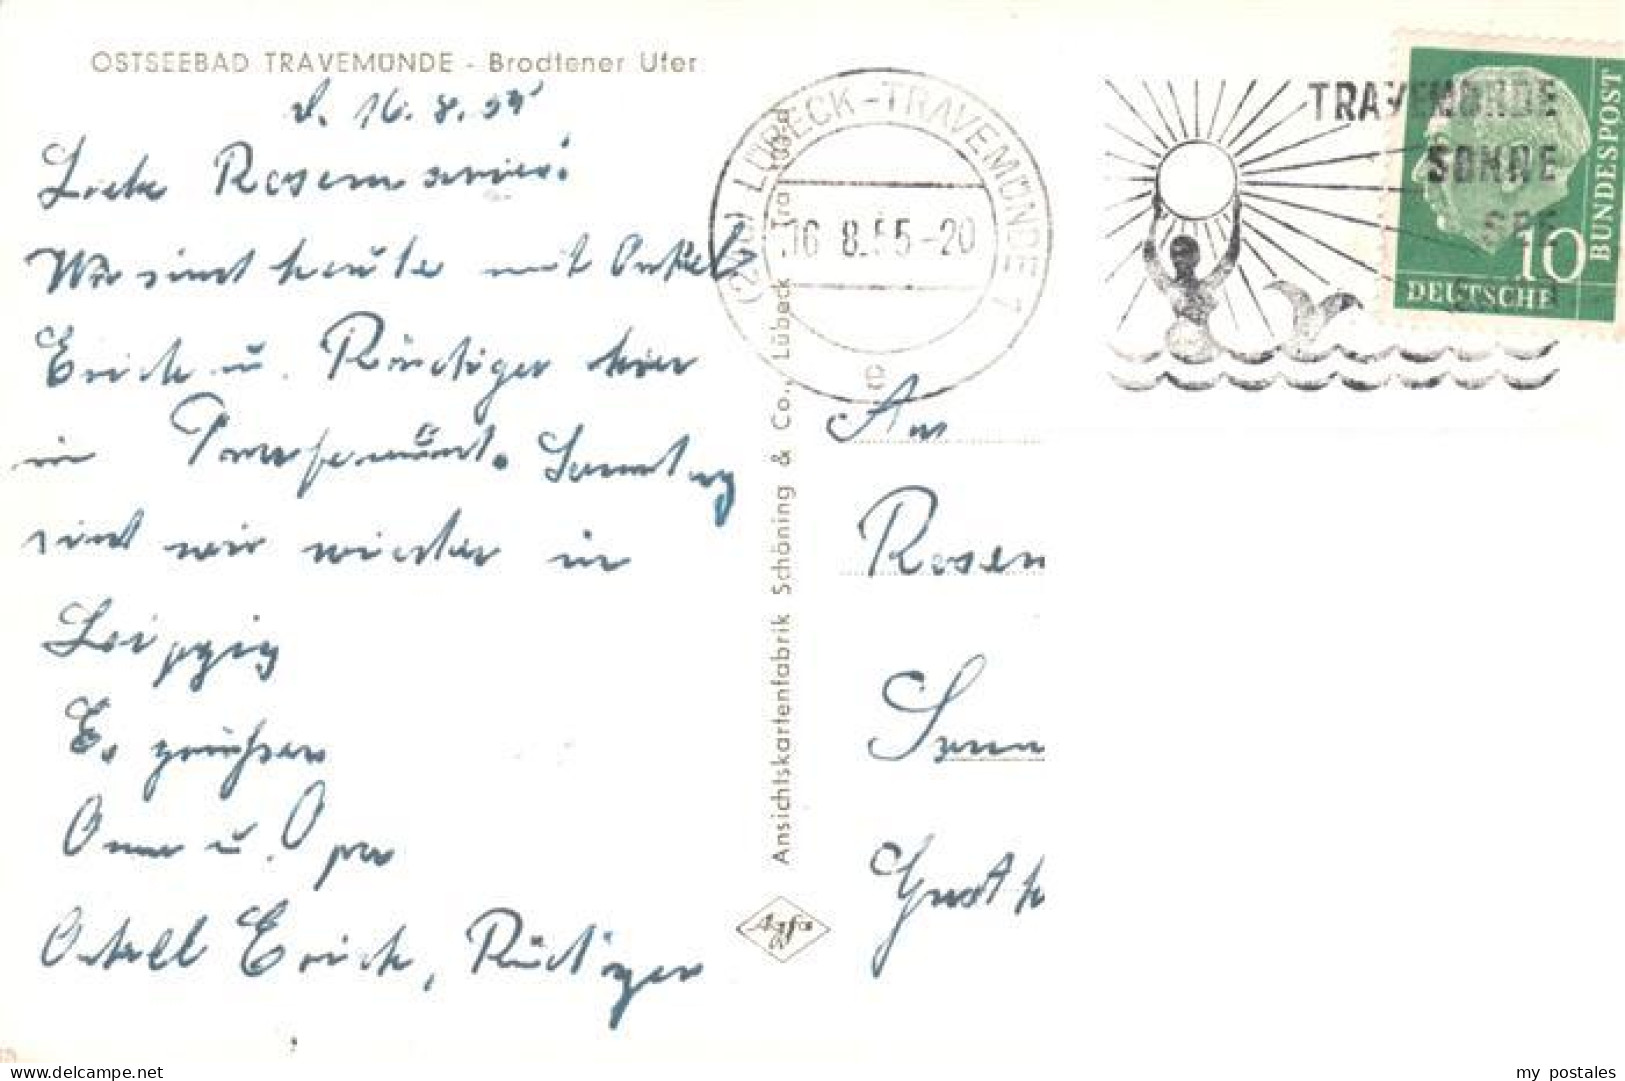 OSTSEEBAD TRAVEMÜNDE - Brodtener Ufer
d. 16.8.55
Liebe Rosemarie!
Wir sind heute mit Onkel
Erich u. Rüdiger hier
in Travemünd. Sonntag
sind wir wieder in
Leipzig
Es grüßen
Oma u. Opa
Onkel Erich, Rüdiger
Ansichtskartenfabrik Schöning & Co., Lübeck
Agfa
(24b) LÜBECK-TRAVEMÜNDE 1
16.8.55-20
e
TRAVEMÜNDE
SONNE
SEE
10
DEUTSCHE
BUNDESPOST
An
Rosem
Gust
my postales